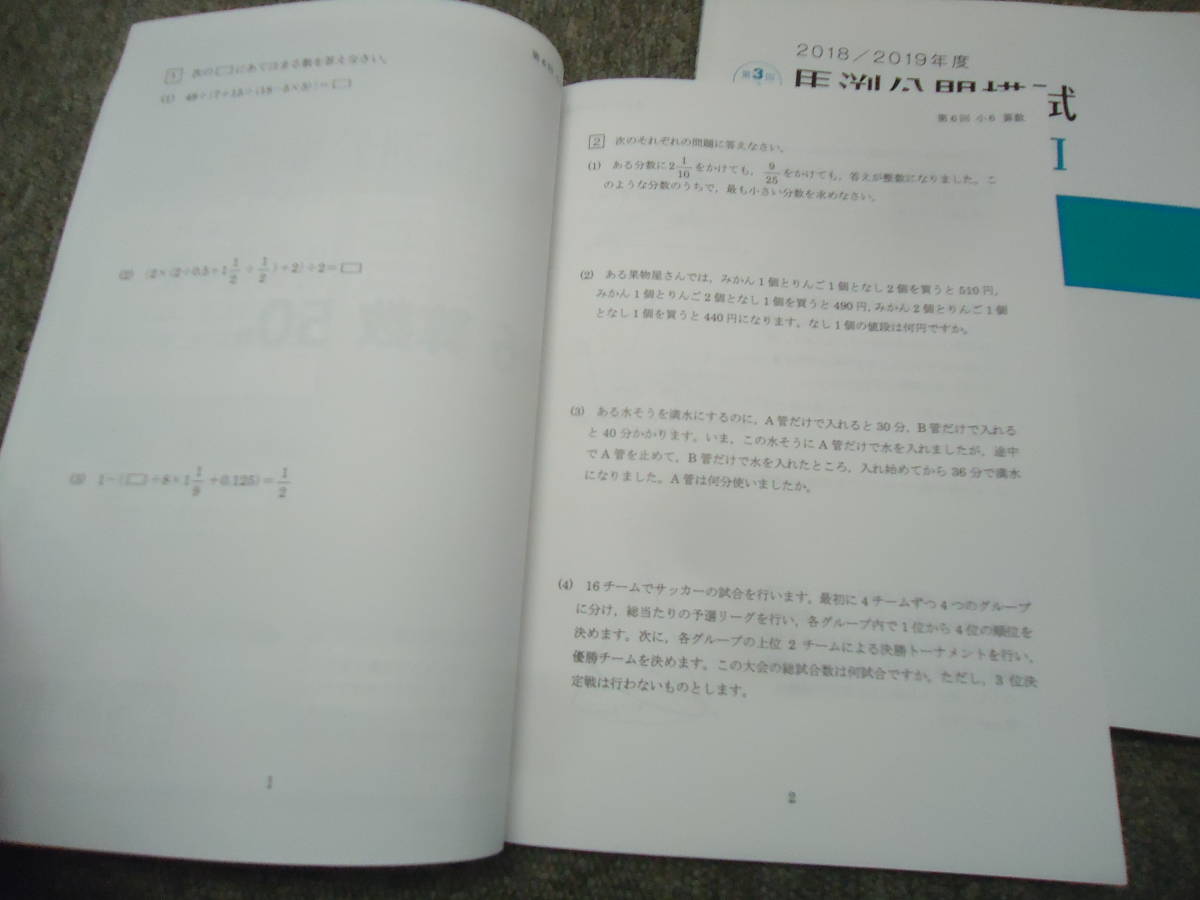 1 次の□にあてはまる数を答えなさい。
(2) {2×(2÷0.5+1 1/2 ÷ 1/2)+2}÷2=□
(3) 1-(□÷8×1 1/9 +0.125)= 1/2
1
第6回 小6 算数
2 次のそれぞれの問題に答えなさい。
(1) ある分数に2 1/10 をかけても, 9/25 をかけても, 答えが整数になりました。こ
のような分数のうちで, 最も小さい分数を求めなさい。
(2) ある果物屋さんでは, みかん1個とりんご1個となし2個を買うと510円,
みかん1個とりんご2個となし1個を買うと490円, みかん2個とりんご1個
となし1個を買うと440円になります。なし1個の値段は何円ですか。
(3) ある水そうを満水にするのに, A管だけで入れると30分, B管だけで入れる
と40分かかります。いま, この水そうにA管だけで水を入れましたが, 途中
でA管を止めて, B管だけで水を入れたところ, 入れ始めてから36分で満水
になりました。A管は何分使いましたか。
(4) 16チームでサッカーの試合を行います。最初に4チームずつ4つのグループ
に分け, 総当たりの予選リーグを行い, 各グループ内で1位から4位の順位を
決めます。次に, 各グループの上位2チームによる決勝トーナメントを行い,
優勝チームを決めます。この大会の総試合数は何試合ですか。ただし, 3位決
定戦は行わないものとします。
2
2018/2019年度
第3回
馬渕公開模試